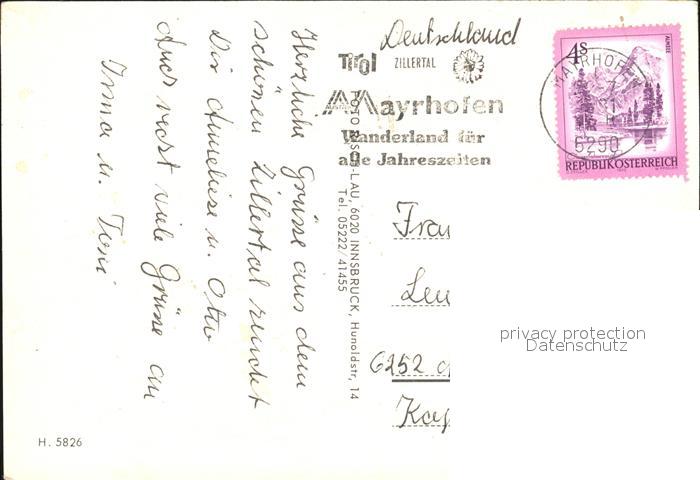 Herzliche Grüsse aus dem
schönen Zillertal sendet
Dir Anneliese u. Otto
Auch recht viele Grüsse an
Irma u. Toni
H. 5826
FOTO LAU, 6020 INNSBRUCK, Hunoldstr. 14
Tel. 05222/41455
Deutschland
Tirol ZILLERTAL
Mayrhofen
Wanderland für
alle Jahreszeiten
4S
ALMSEE
MAYRHOFEN
6290
REPUBLIK ÖSTERREICH
Frau
6252
privacy protection
Datenschutz